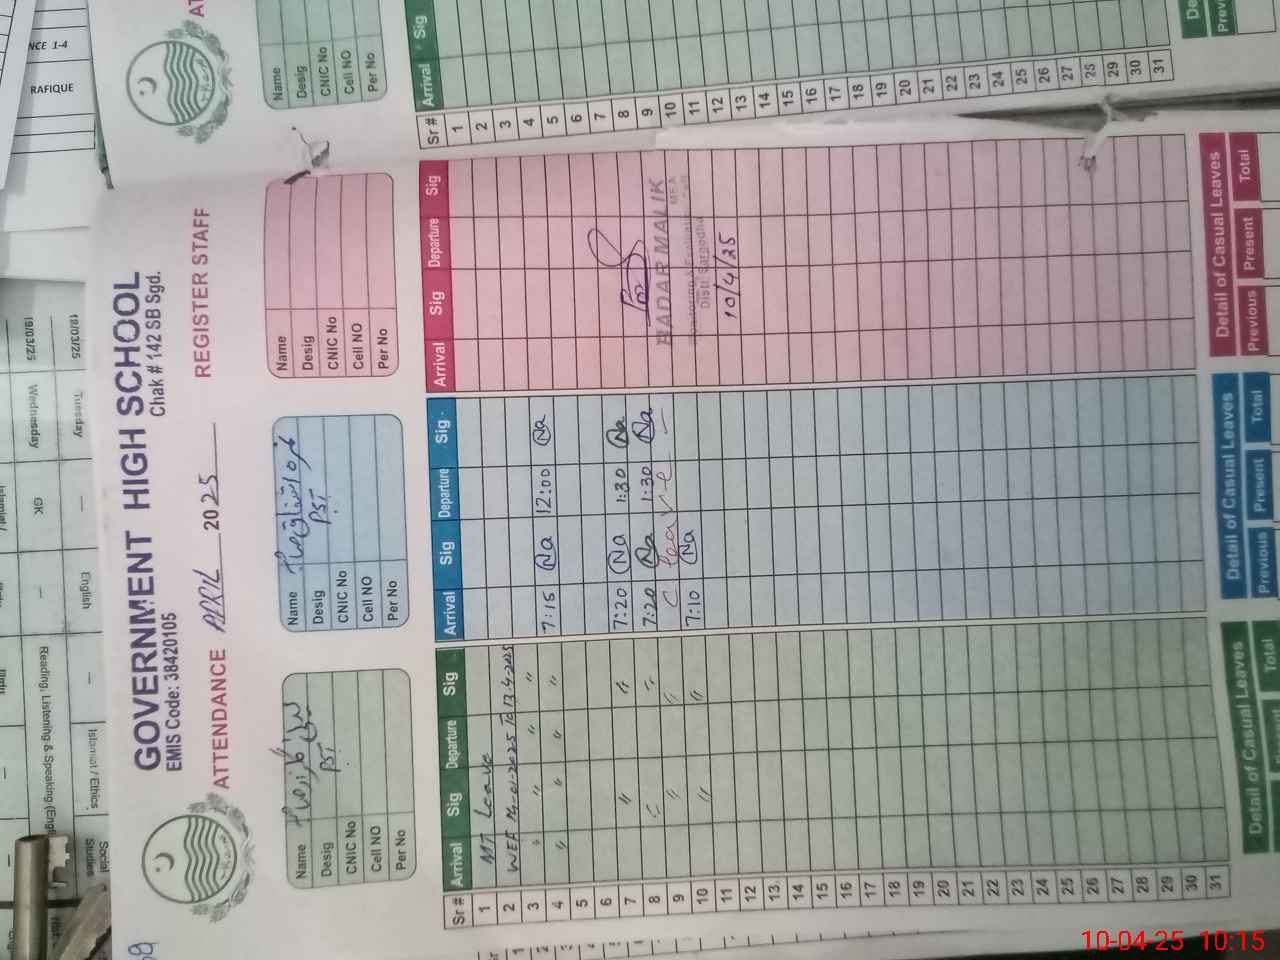 GOVERNMENT HIGH SCHOOL
EMIS Code: 38420105
Chak # 142 SB Sgd.
ATTENDANCE APRIL 2025 REGISTER STAFF
Name
Desig PST
CNIC No
Cell NO
Per No
Name
Desig PST
CNIC No
Cell NO
Per No
Name
Desig
CNIC No
Cell NO
Per No
Sr # Arrival Sig Departure Sig Arrival Sig Departure Sig Arrival Sig Departure Sig
1 MT Leave
2 WEF 14-01-2025 To 13-4-2025
3 " " " "
4 " " " " 7:15 Na 12:00 Na
5
6
7 " " 7:20 Na 1:30 Na
8 " " 7:20 Na 1:30 Na
9 " " C leave
10 " " 7:10 Na
11
12
13
14
15
16
17
18
19
20
21
22
23
24
25
26
27
28
29
30
31
BADAR MALIK
MEA
Distt Sargodha
10/4/25
Detail of Casual Leaves
Total
Detail of Casual Leaves
Previous Present Total
Detail of Casual Leaves
Previous Present Total
Name
Desig
CNIC No
Cell NO
Per No
Sr # Arrival Sig
1
2
3
4
5
6
7
8
9
10
11
12
13
14
15
16
17
18
19
20
21
22
23
24
25
26
27
28
29
30
31
NCE 1-4
RAFIQUE
18/03/25 Tuesday — English — Islamiat / Ethics Social Studies
19/03/25 Wednesday GK — Reading, Listening & Speaking
10-04-25 10:15